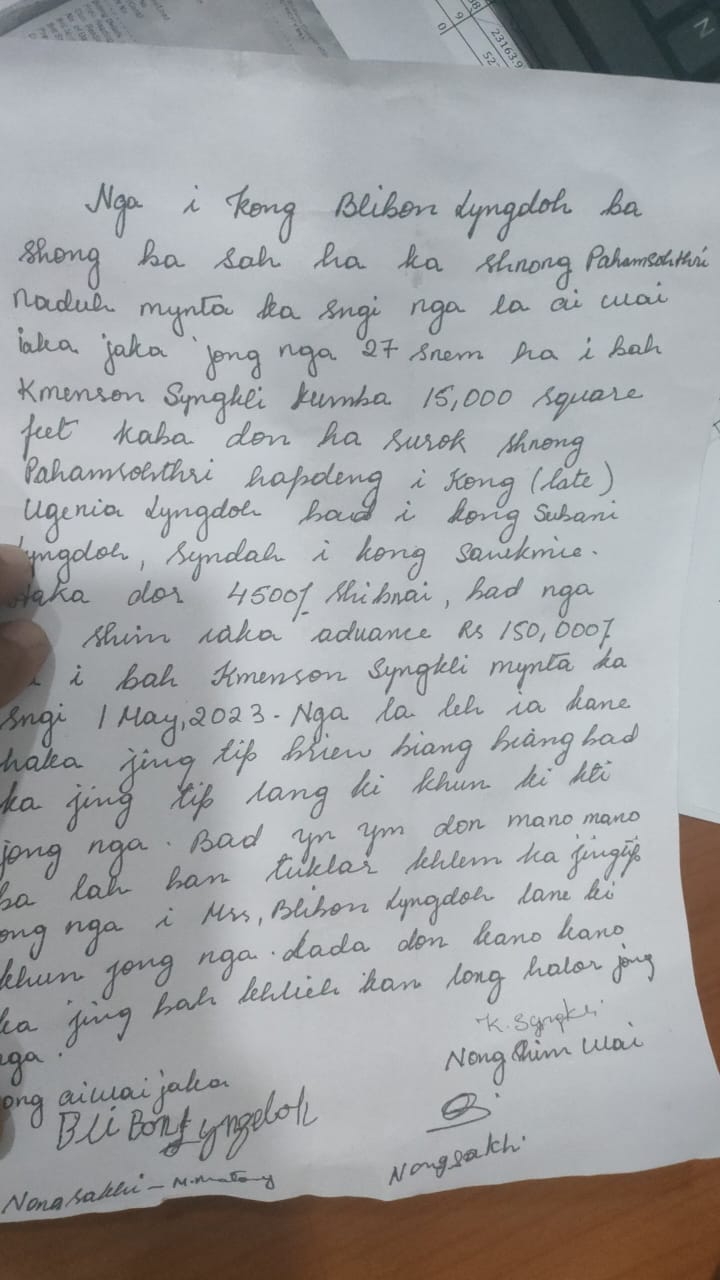 23163.9
N
Nga i Kong Blibon Lyngdoh ba
shong ba sah ha ka shnong Pahamsohthri
Naduh mynta ka sngi nga la ai wai
iaka jaka jong nga 27 snem ha i bah
Kmenson Syngkli kumba 15,000 square
feet kaba don ha surok shnong
Pahamsohthri hapdeng i Kong (late)
Ugenia Lyngdoh bad i kong Subani
yngdoh, syndah i kong sawkmie.
dor 4500/- shibnai, bad nga
shim iaka advance Rs 150,000/
i bah Kmenson Syngkli mynta ka
sngi 1 May, 2023. Nga la leh ia kane
haka jing tip briew biang biang bad
ka jing tip lang ki khun ki kti
jong nga. Bad yn ym don mano mano
ba lah ban tuklar khlem ka jingtip
ong nga i Mrs, Blibon Lyngdoh lane ki
khun jong nga. Lada don kano kano
ka jing bah khlieh kan long halor jong
nga.
K. Syngkli
Nong Shim wai
ong aiwai jaka
Bli Bon Lyngdoh
Nongsakhi
Nongsakhi -